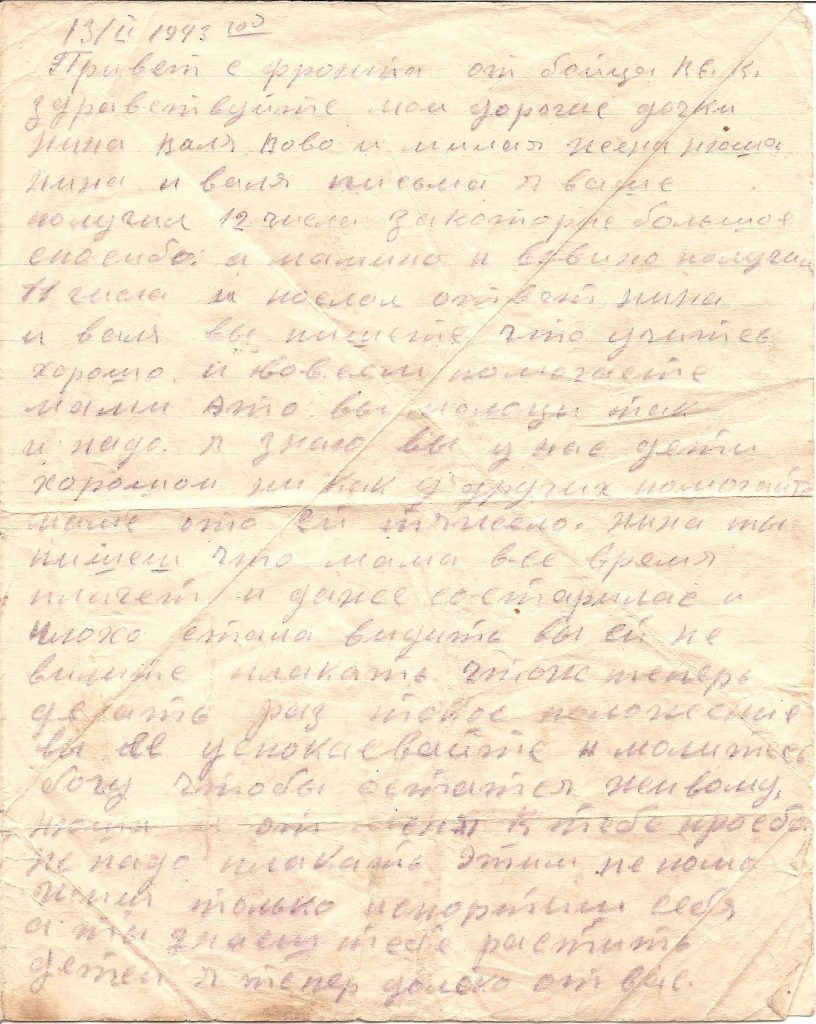 13/II 1943 год
Привет с фронта от бойца Кв. К.
здравствуйте мои дорогие дочки
Нина Валя Вово и милая жена Нюша
Нина и Валя письма я ваше
получил 12 числа закоторые большое
спосибо. а мамино и вовино получил
11 числа и послал ответ. Нина
и валя вы пишете что учитесь
хорошо. и вовсем помогаете
мами это вы молоцы так
и надо. я знаю вы у нас дети
хорошои ни как у других помогайте
маме ото ей тяжело. Нина ты
пишеш что мама все время
плачет и даже состарилас и
плохо стала видить вы ей не
вилите плакать. чтож теперь
делать раз токое положение
вы её успокаевайте и молитесь
богу чтобы остатся живому.
Нюша и от меня к тебе прозба
не надо плакать этим не помо
жиш только испортиш себя
а ты знаеш тебе растить
детей я тепер долеко от вас.